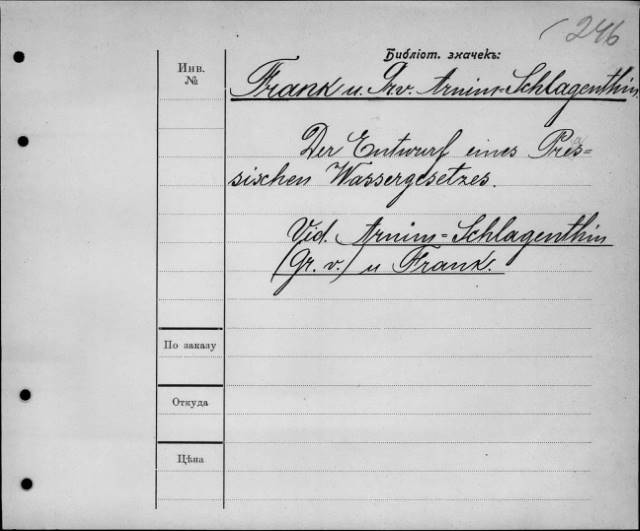 246
Библіот. значекъ:
Инв.
№
Frank u. Gr. v. Arnim-Schlagenthin
Der Entwurf eines Preus=
sischen Wassergesetzes.
Vid. Arnim=Schlagenthin
(Gr. v.) u Frank.
По заказу
Откуда
Цѣна